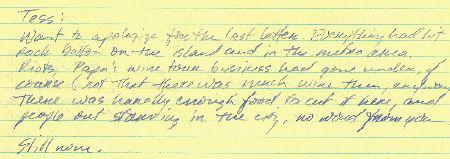 Tess:
Want to apologize for the last letter. Everything had hit
rock bottom on the island and in the metro area.
Riots, Papa's wine town business had gone under, of
course (not that there was much wine then, anyway
there was hardly enough food to eat here, and
people out starving in the city, no word from you
Still now.